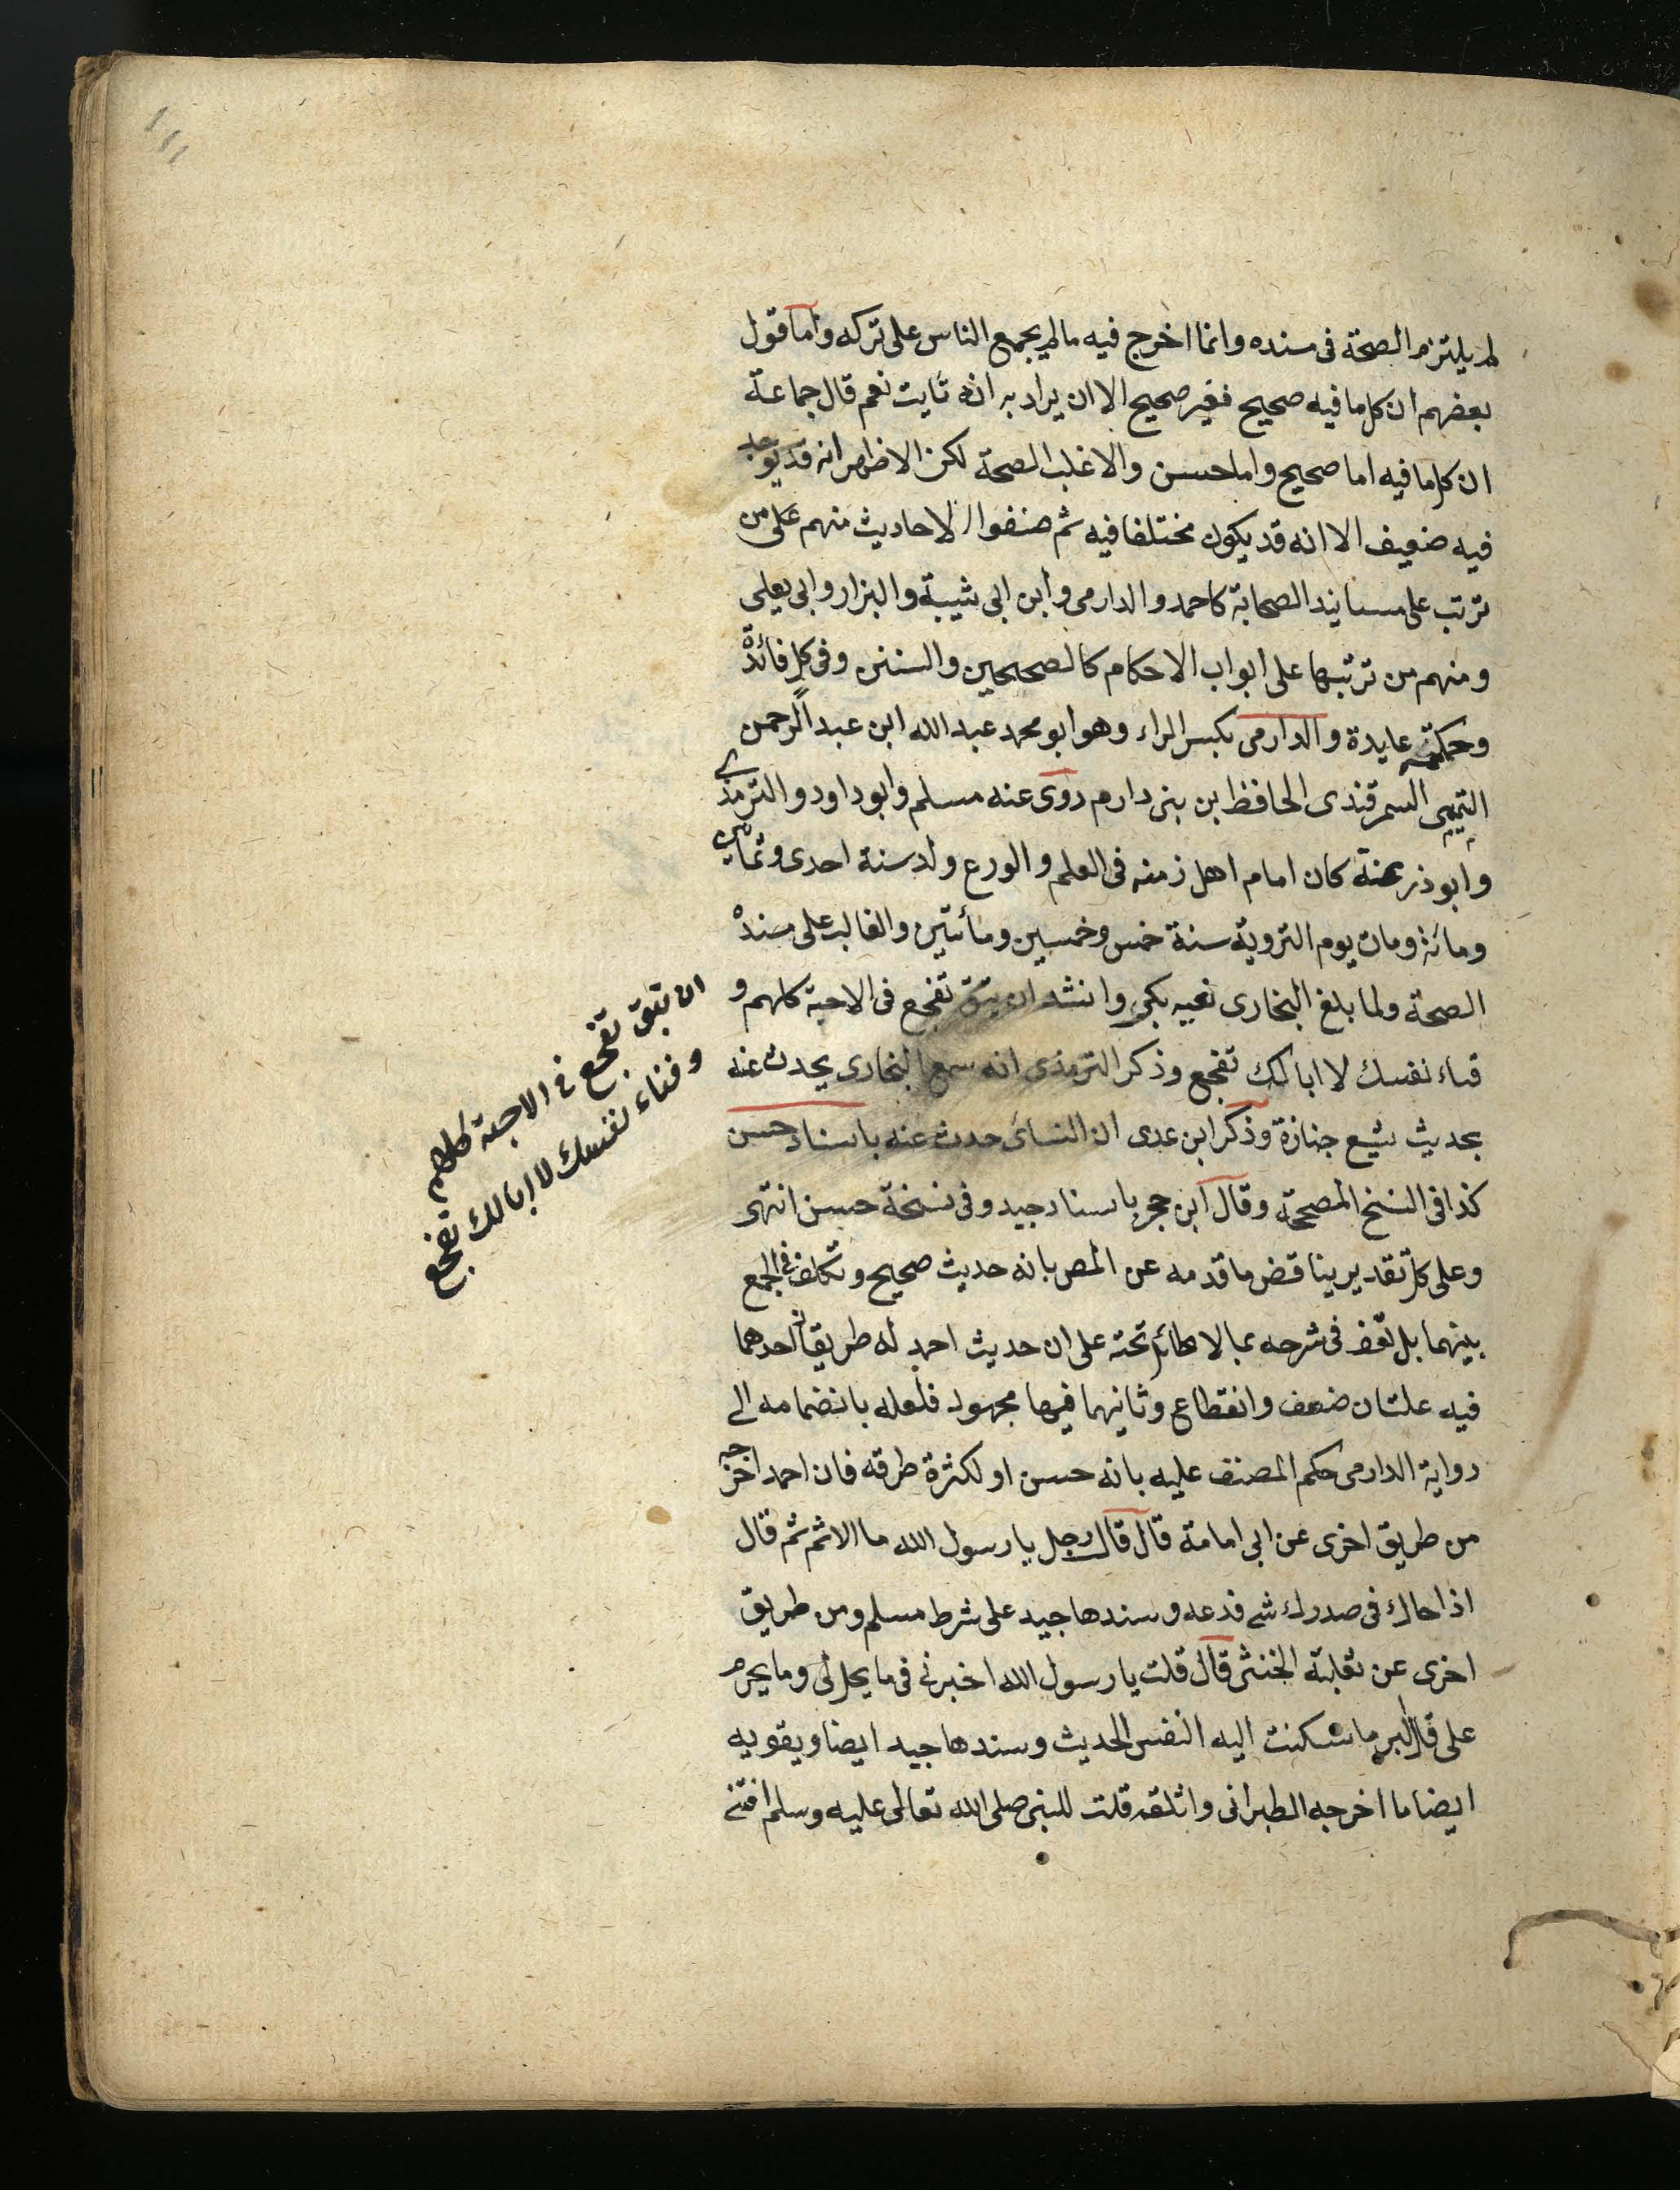 لم يلتزم الصحة فى مسنده وانما اخرج فيه ما لم يجمع الناس على تركه واما قول
بعضهم ان كل ما فيه صحيح فغير صحيح الا ان يراد به انه ثابت نعم قال جماعة
ان كل ما فيه اما صحيح واما حسن والاغلب الصحة لكن الاظهر انه قد يوجد
فيه ضعيف الا انه قد يكون مختلفا فيه ثم صنفوا الاحاديث منهم على من
ترتب على مسانيد الصحابة كاحمد والدارمى وابن ابى شيبة والبزار وابى يعلى
ومنهم من ترتبها على ابواب الاحكام كالصحيحين والسنن وفى كل فائدة
وحكمة عايدة والدارمى بكسر الراء وهو ابو محمد عبد الله ابن عبد الرحمن
التميمى السمرقندى الحافظ بن بنى دارم روى عنه مسلم وابو داود والترمذى
وابو ذرعنة كان امام اهل زمنه فى العلم والورع ولد سنة احدى وثمانين
ومائة ومات يوم التروية سنة خمس وخمسين ومأتين والغالب على مسنده
الصحة ولما بلغ البخارى نعيه بكى وانشد ان تبق تفجع فى الاحبة كلهم و
فناء نفسك لا ابا لك تفجع وذكر الترمذى انه سمع البخارى يحدث عنه
بحديث شيع جنازة وذكر ابن عدى ان النسائى حدث عنه باسناد حسن
كذا فى النسخ المصححة وقال ابن حجر باسناد جيد وفى نسخة حسن انتهى
وعلى كل تقدير يناقض ما قدمه عن المص بانه حديث صحيح وتكلف فى الجمع
بينهما بل فى شرحه بما لا طائل تحته على ان حديث احمد له طريقان احدهما
فيه علتان ضعف وانقطاع وثانيهما فيها مجهول فلعله بانضمامه الى
رواية الدارمى حكم المصنف عليه بانه حسن او لكثرة طرقه فان احمد اخرجه
من طريق اخرى عن ابى امامة قال قال رجل يا رسول الله ما الاثم ثم قال
اذا حاك فى صدرك شى فدعه وسندها جيد على شرط مسلم ومن طريق
اخرى عن ثعلبة الخشنى قال قلت يا رسول الله اخبرنى فى ما يحل لى وما يحرم
على قال البر ما سكنت اليه النفس الحديث وسندها جيد ايضا ويقويه
ايضا ما اخرجه الطبرانى واثلة قلت للنبى صلى الله تعالى عليه وسلم افتنى
ان تبق تفجع فى الاحبة كلهم
وفناء نفسك لا ابا لك تفجع